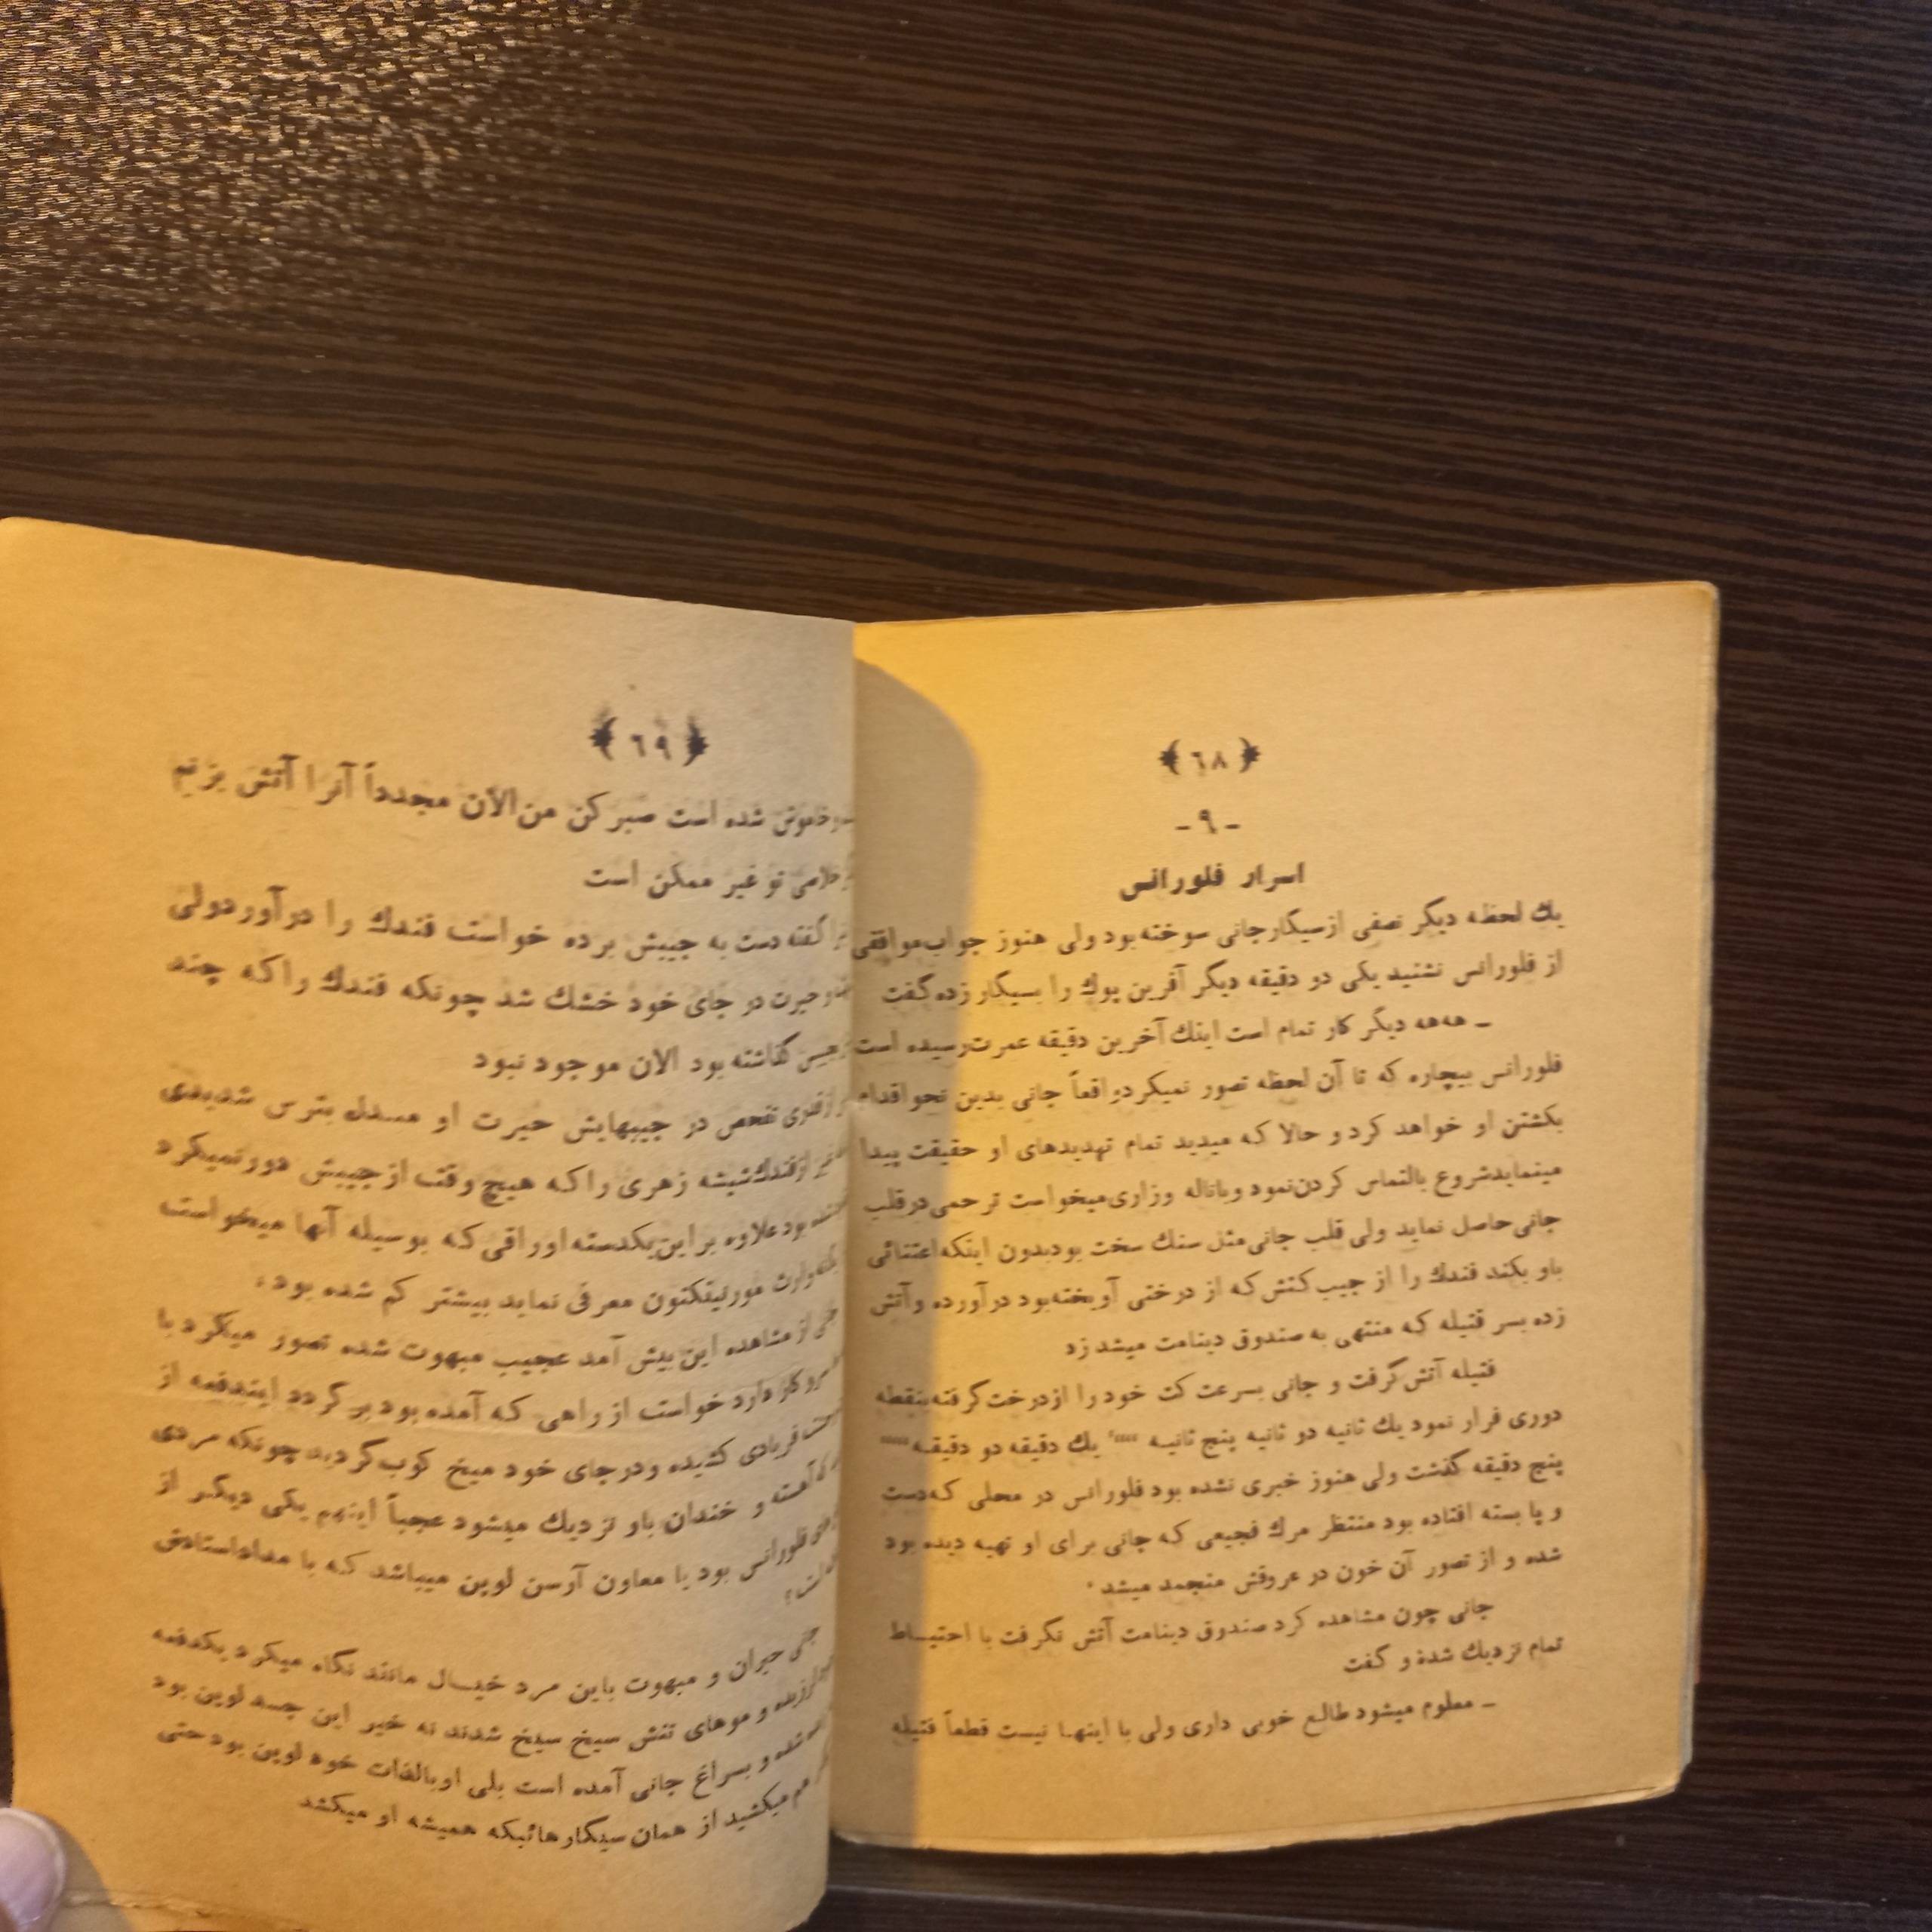 ﴿٦٨﴾
-٩-
اسرار فلورانس
يك لحظه ديگر نصفى ازسيگارجانى سوخته‌بود ولى هنوز جواب‌موافقى
از فلورانس نشنيد يكى دو دقيقه ديگر آفرين پوك را بسيگار زده گفت
ـ هه‌هه ديگر كار تمام است اينك آخرين دقيقه عمرت رسيده است
فلورانس بيچاره كه تا آن لحظه تصور نميكرد واقعاً جانى بدين نحو اقدام
بكشتن او خواهد كرد و حالا كه ميديد تمام تهديدهاى او حقيقت پيدا
مينمايد شروع بالتماس كردن نمود و باناله وزارى ميخواست ترحمى در قلب
جانى حاصل نمايد ولى قلب جانى مثل سنك سخت بود بدون اينكه اعتنائى
باو بكند فندك را از جيب كتش كه از درختى آويخته‌بود درآورده وآتش
زده بسر فتيله كه منتهى به صندوق دينامت ميشد زد
فتيله آتش گرفت و جانى بسرعت كت خود را ازدرخت گرفته بنقطه
دورى فرار نمود يك ثانيه دو ثانيه پنج ثانيه ..... يك دقيقه دو دقيقه .....
پنج دقيقه گذشت ولى هنوز خبرى نشده بود فلورانس در محلى كه دست
و پا بسته افتاده بود منتظر مرك فجيعى كه جانى براى او تهيه ديده بود
شده و از تصور آن خون در عروقش منجمد ميشد .
جانى چون مشاهده كرد صندوق دينامت آتش نگرفت با احتيـاط
تمام نزديك شده و گفت
ـ معلوم ميشود طالع خوبى دارى ولى با اينهـا نيست قطعاً فتيله
﴿٦٩﴾
خاموش شده است صبر كن من الان مجدداً آنرا آتش بزنم
خلاصى تو غير ممكن است
گفته دست به جيبش برده خواست فندك را درآورد ولى
حيرت در جاى خود خشك شد چونكه فندك را كه چند
گذاشته بود الان موجود نبود
تفحص در جيبهايش حيرت او مبدل بترس شديدى
از فندك شيشه زهرى را كه هيچ وقت از جيبش دور نميكرد
بود علاوه بر اين يكدسته اوراقى كه بوسيله آنها ميخواست
وارث مورنيفكتون معرفى نمايد بيشتر كم شده بود .
از مشاهده اين پيش آمد عجيب مبهوت شده تصور ميكرد با
سرو كار دارد خواست از راهى كه آمده بود بر گردد ايندفعه از
فريادى كشيده ودرجاى خود ميخ كوب گرديد چونكه مردى
آهسته و خندان باو نزديك ميشود عجباً اينهم يكى ديگر از
فلورانس بود يا معاون آرسن لوپن ميباشد كه با
؟
حيران و مبهوت باين مرد خيـال مانند نگاه ميكرد يكدفعه
لرزيده و موهاى تنش سيخ سيخ شدند نه خير اين جسد لوپن بود
شده و بسراغ جانى آمده است بلى او بالذات خود لوپن بود حتى
هم ميكشيد از همان سيگارهائيكه هميشه او ميكشد